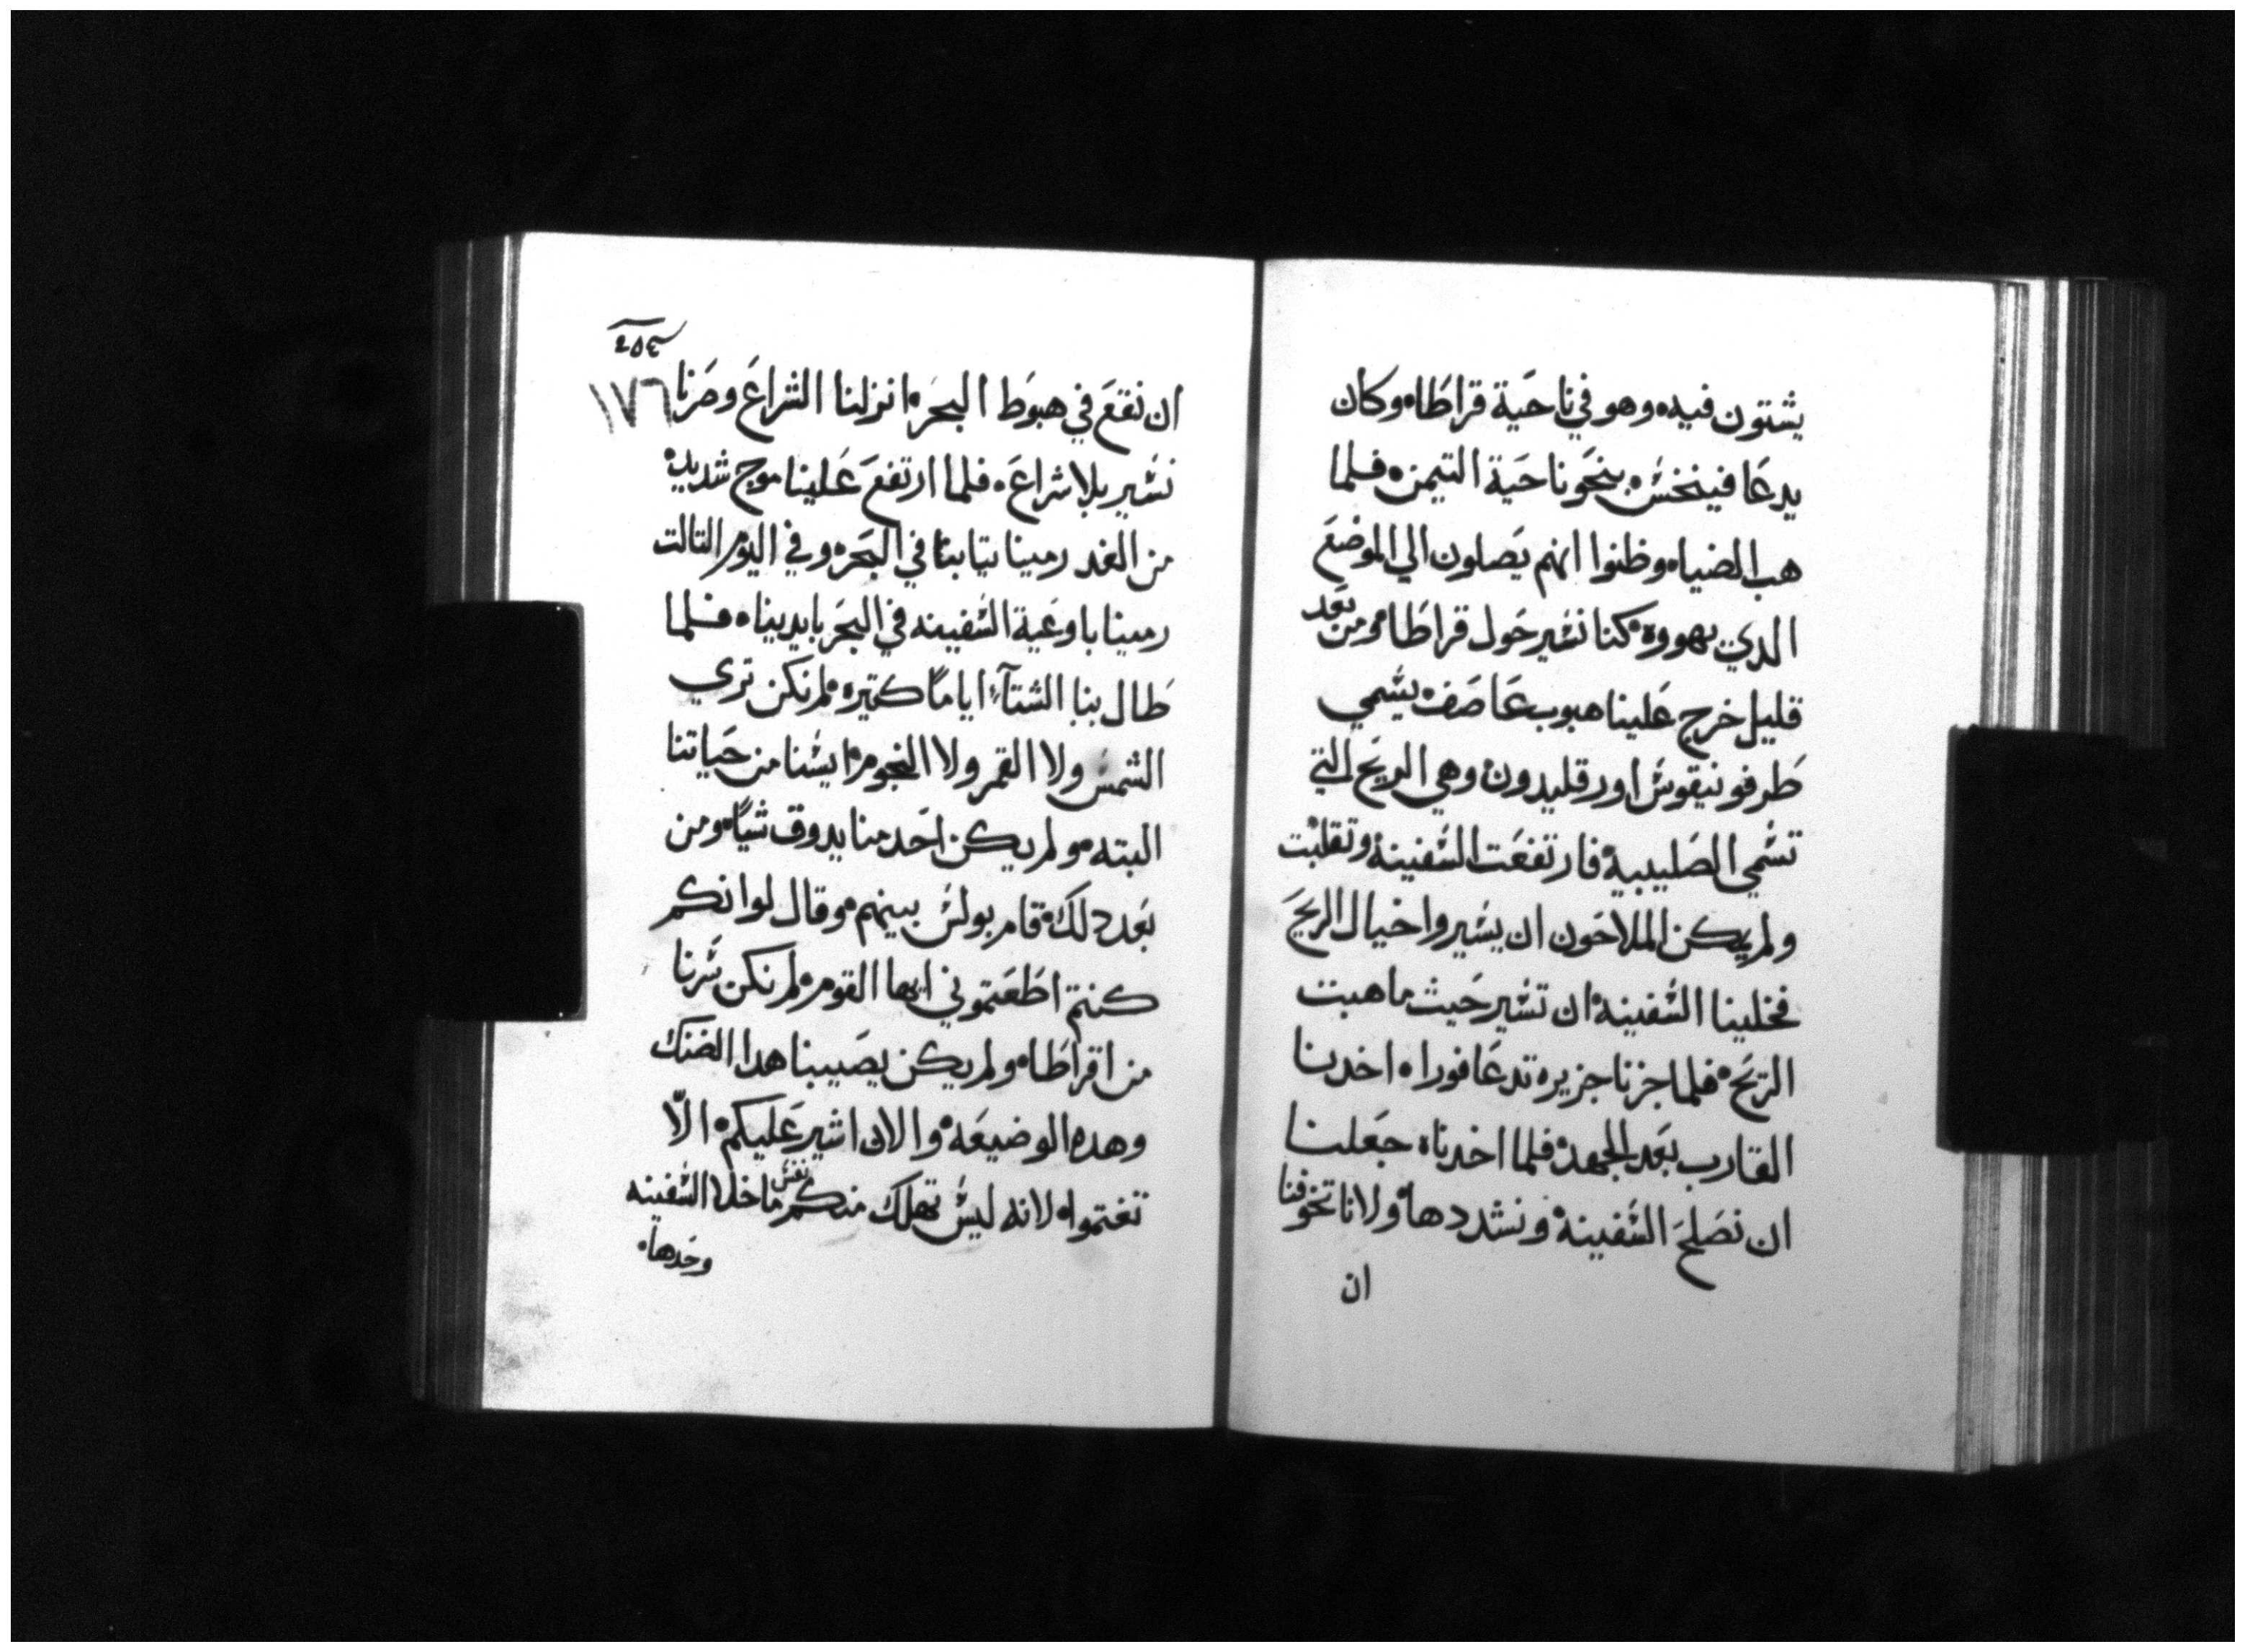 يشتون فيه وهو في ناحية قراطا وكان
يدعا فينخس بنحو ناحية التيمن فلما
هب الضيا وظنوا انهم يصلون الي الموضع
الدي يهووه كنا نسير حول قراطا ومن بعد
قليل خرج علينا هبوب عاصف يسمي
طرفونيقوس اورقليدون وهي الريح التي
تسمي الصليبية فارتفعت السفينة وتقلبت
ولم يكن الملاحون ان يسيروا خيال الريح
فخلينا السفينة ان تسير حيث ما هبت
الريح فلما جزنا جزيره تدعا فورا اخدنا
القارب بعد الجهد فلما اخدناه جعلنا
ان نصلح السفينة ونشددها ولانا تخوفنا
ان
١٧٦
ان نقع في هبوط البحر انزلنا الشراع وصرنا
نسير بلا شراع فلما ارتفع علينا موج شديد
من الغد رمينا بتيابنا في البحر وفي اليوم التالت
رمينا باوعية السفينه في البحر بايدينا فلما
طال بنا الشتآء اياماً كتيره لم نكن نري
الشمس ولا القمر ولا النجوم ايسنا من حياتنا
البته ولم يكن احد منا يدوق شياً ومن
بعد دلك قام بولس بينهم وقال لو انكم
كنتم اطعتموني ايها القوم لم نكن سرنا
من اقراطا ولم يكن يصيبنا هدا الضنك
وهده الوضيعه والان اشير عليكم الّا
تغتموا لانه ليس تهلك منكم نفس ما خلا السفينه
وحدها